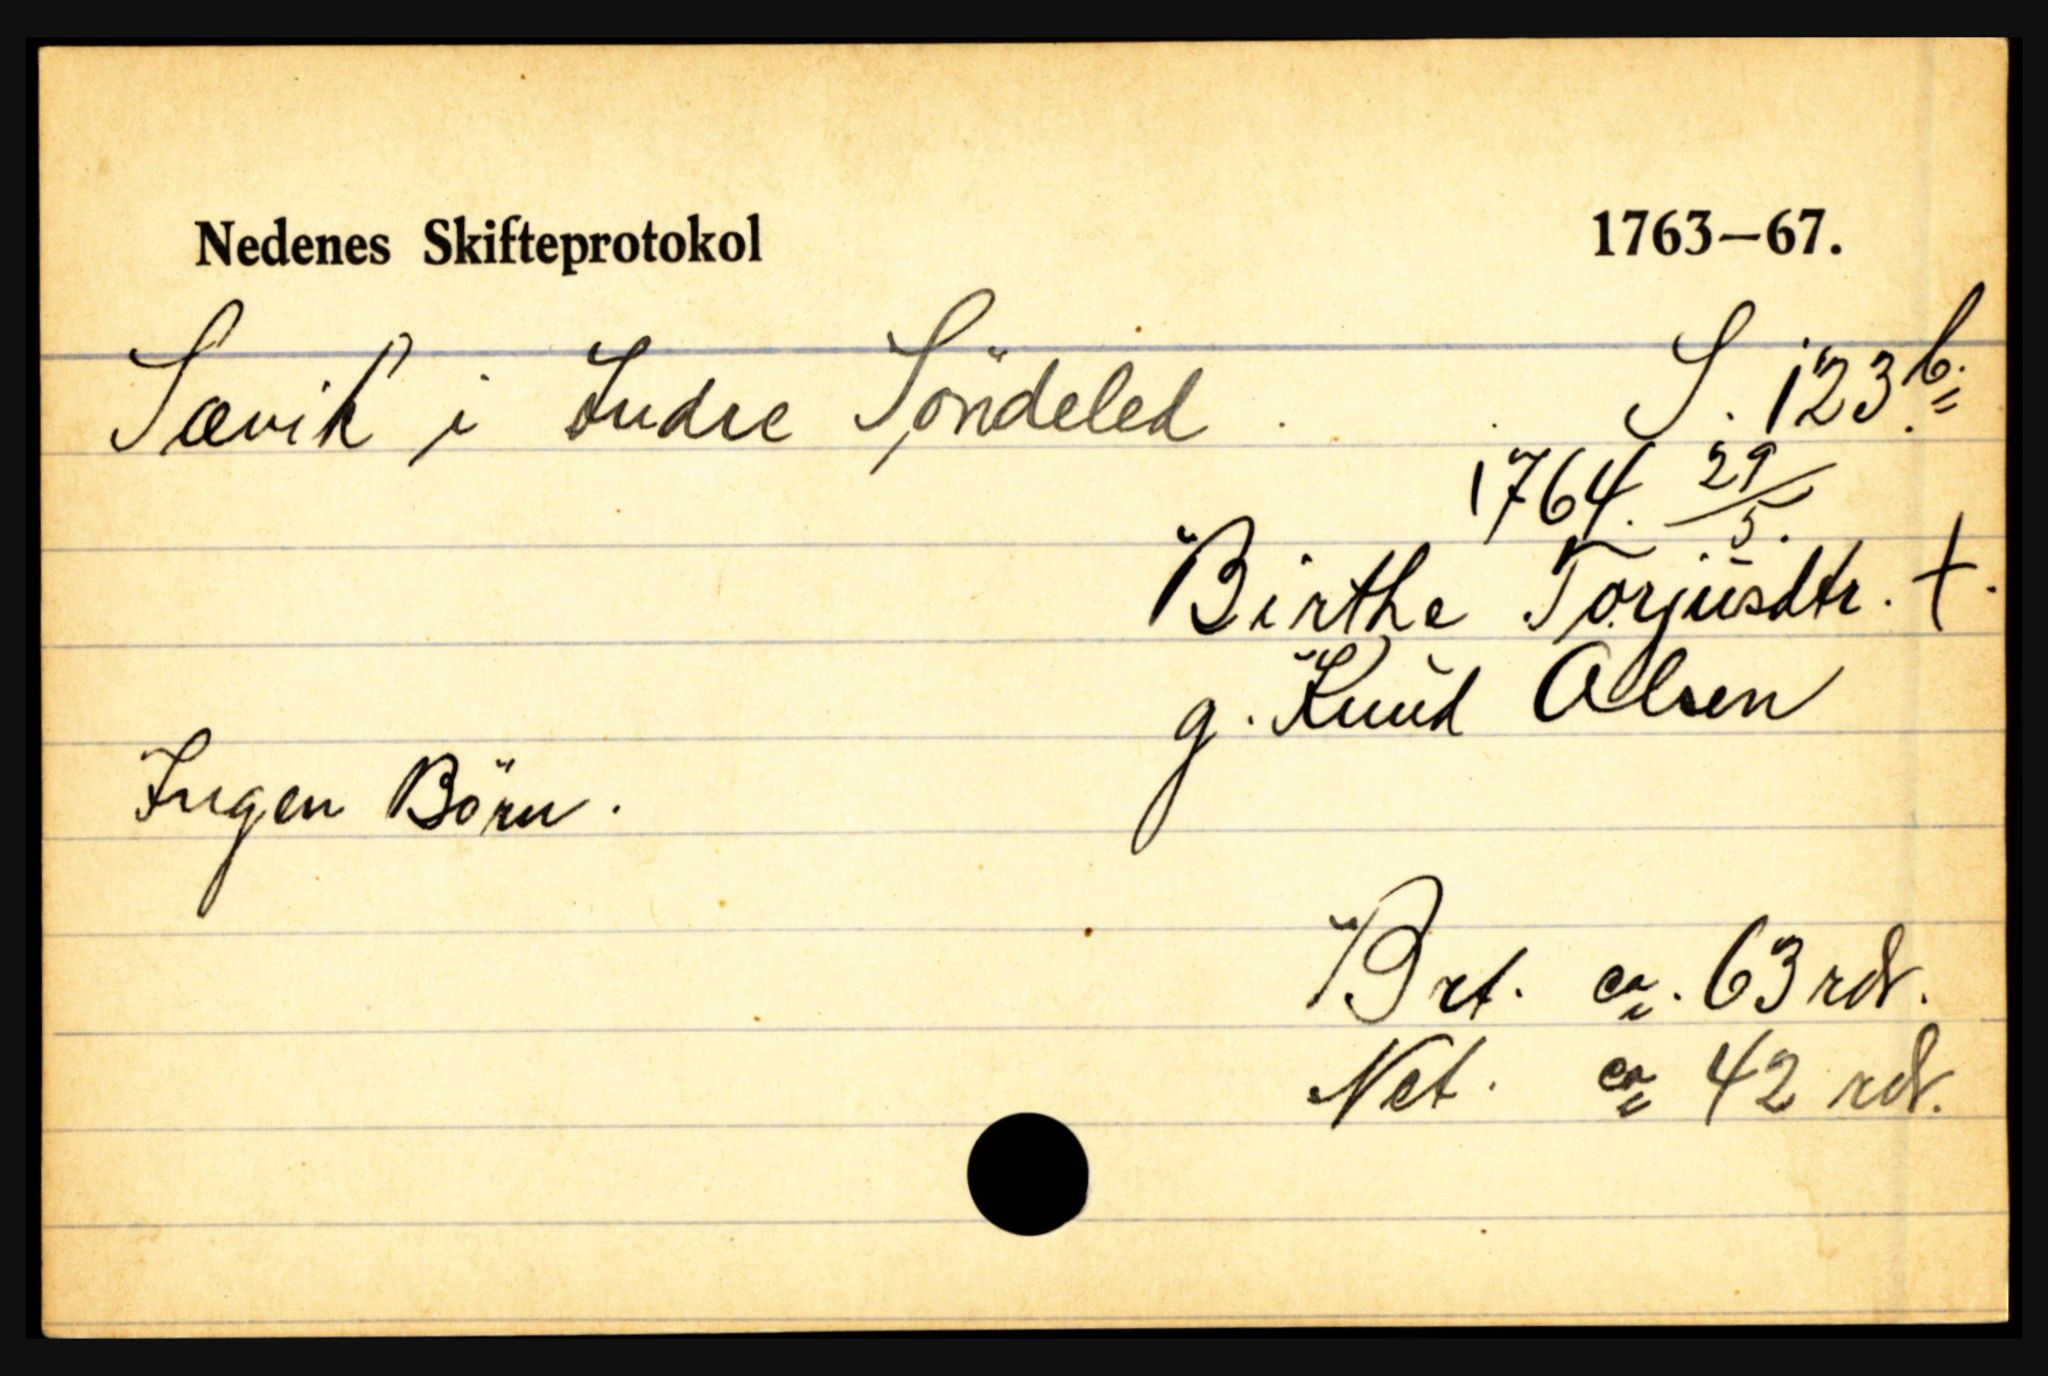 Nedenes Skifteprotokol 1763—67.
Sævik i Indre Söndeled. S. 123b.
1764. 29/5.
Birthe Torjusdtr. †.
g. Knud Olsen
Ingen Börn.
Brt. ca. 63 rdr.
Net. ca 42 rdr.